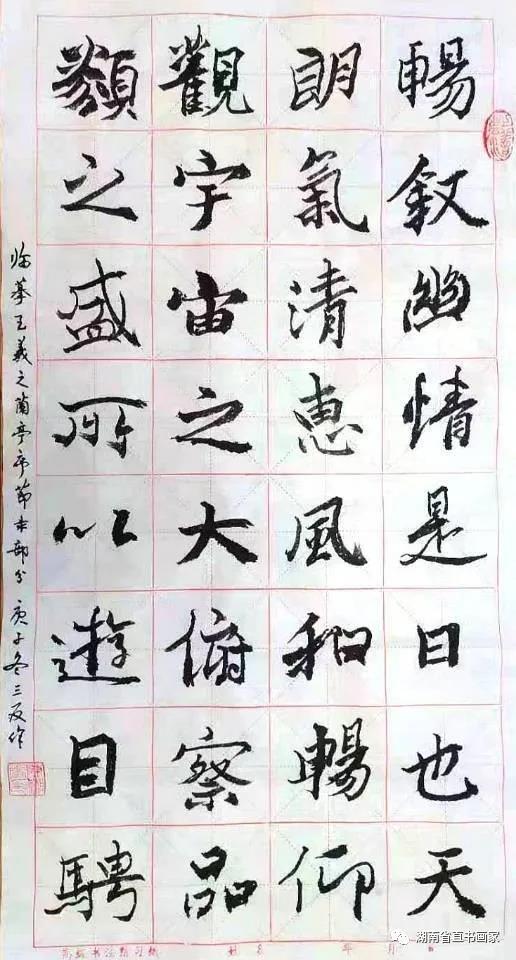 暢叙幽情是日也天
朗氣清惠風和暢仰
觀宇宙之大俯察品
類之盛所以遊目騁
临摹王羲之蘭亭序節本部分 庚子冬三
姓名 年 月 日
湖南省直书画家